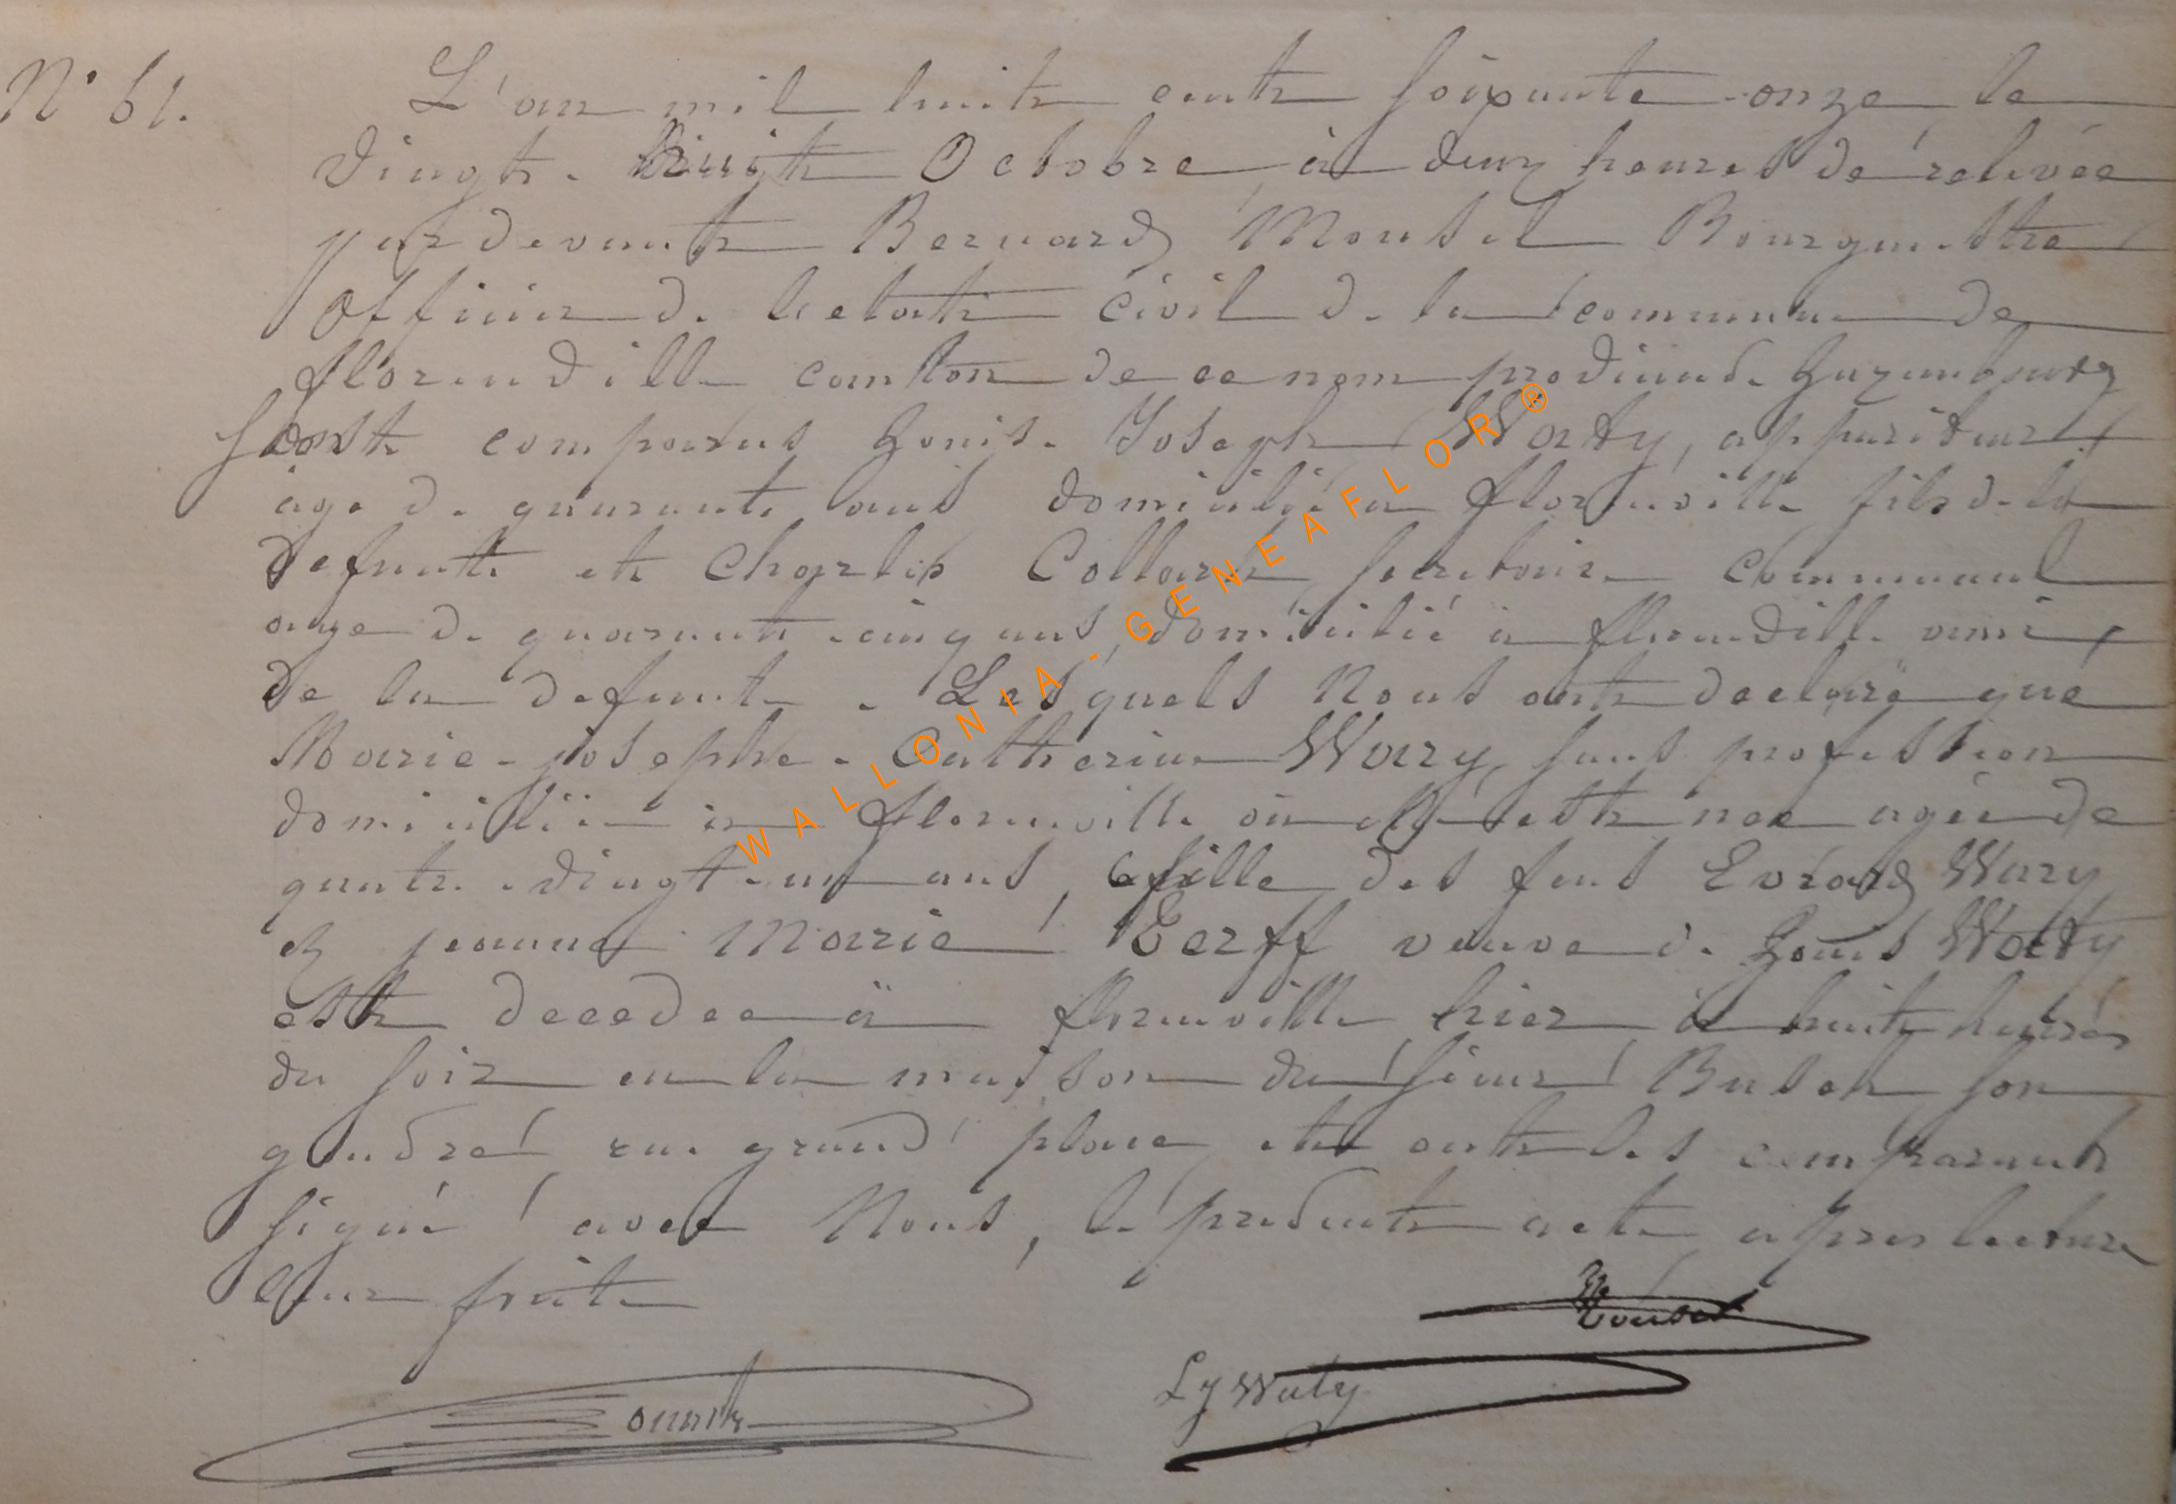 N° 61.
L'an mil huit cent soixante-onze le
Vingt-huit Octobre, à deux heures de relevée
pardevant Bernard Mousel Bourgmestre
officier de l'etat civil de la commune de
florenville canton de ce nom province de Luxembourg
sont comparus Louis-Joseph Waty, appariteur
agé de quarante ans domicilié à florenville fils de la
defunte et Charles Collard secretaire communal
age de quarante-cinq ans, domicilié à florenville ami
de la defunte. Lesquels Nous ont declaré que
Marie-josephe-Catherine Wary sans profession
domiciliée à florenville où elle est née agée de
quatre-vingt-un ans, fille des feus Evrard Wary
et jeanne Marie veuve de Louis Waty
est decedee à florenville hier à huit heures
du soir en la maison du sieur Busch son
gendre rue grand place et ont les comparant
signé avec Nous, le présent acte après lecture
leur faite
Mousel
LJ Waty
WALLONIA-GENEAFLOR®